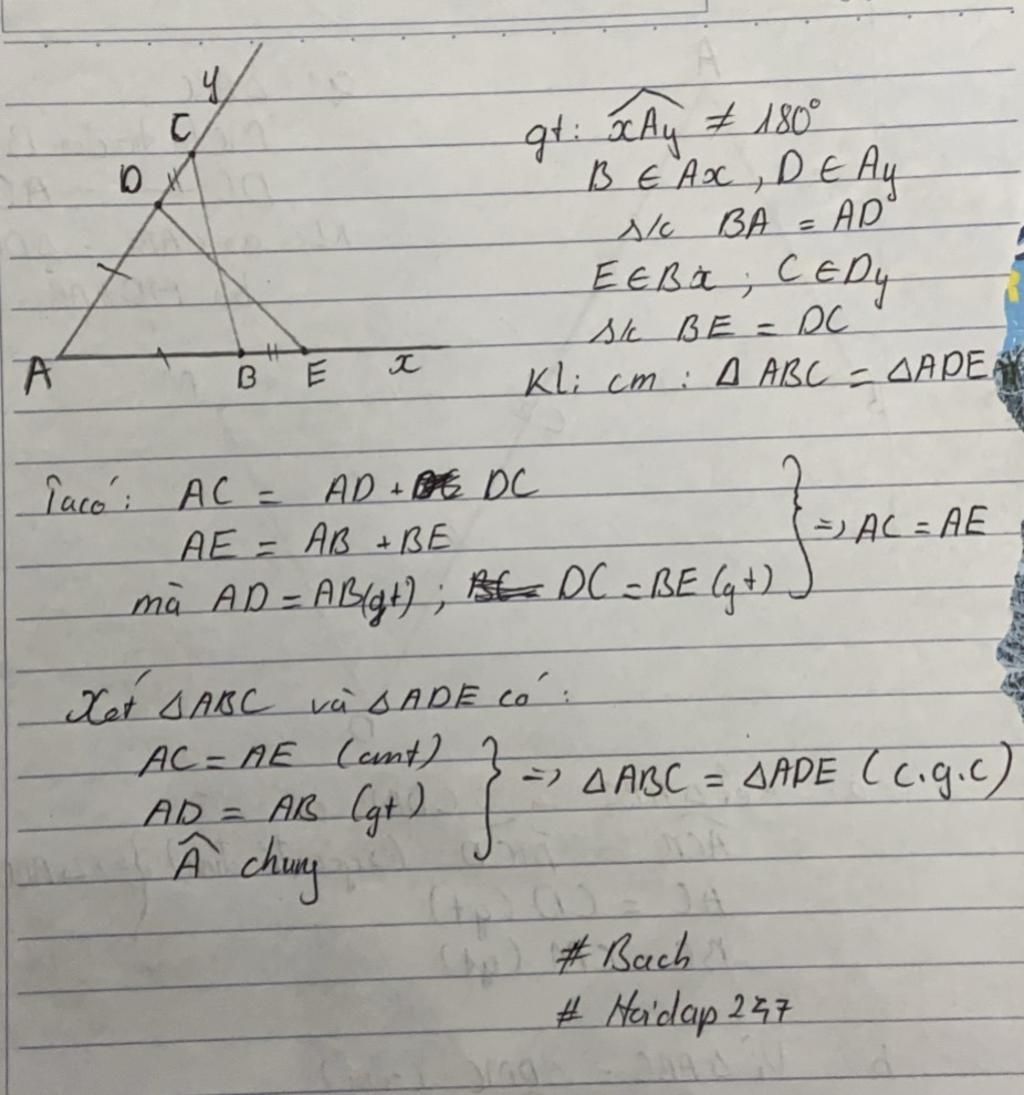 y
C
D
A B E x
gt: xAy ≠ 180°
B ∈ Ax, D ∈ Ay
s/c BA = AD
E ∈ Bx; C ∈ Dy
s/c BE = DC
Kl: cm: Δ ABC = ΔADE
Ta có: AC = AD + DC
AE = AB + BE
mà AD = AB (gt); DC = BE (gt)
} => AC = AE
Xét ΔABC và ΔADE có:
AC = AE (cmt)
AD = AB (gt)
Â chung
} => ΔABC = ΔADE (c.g.c)
# Bach
# Hoidap 247